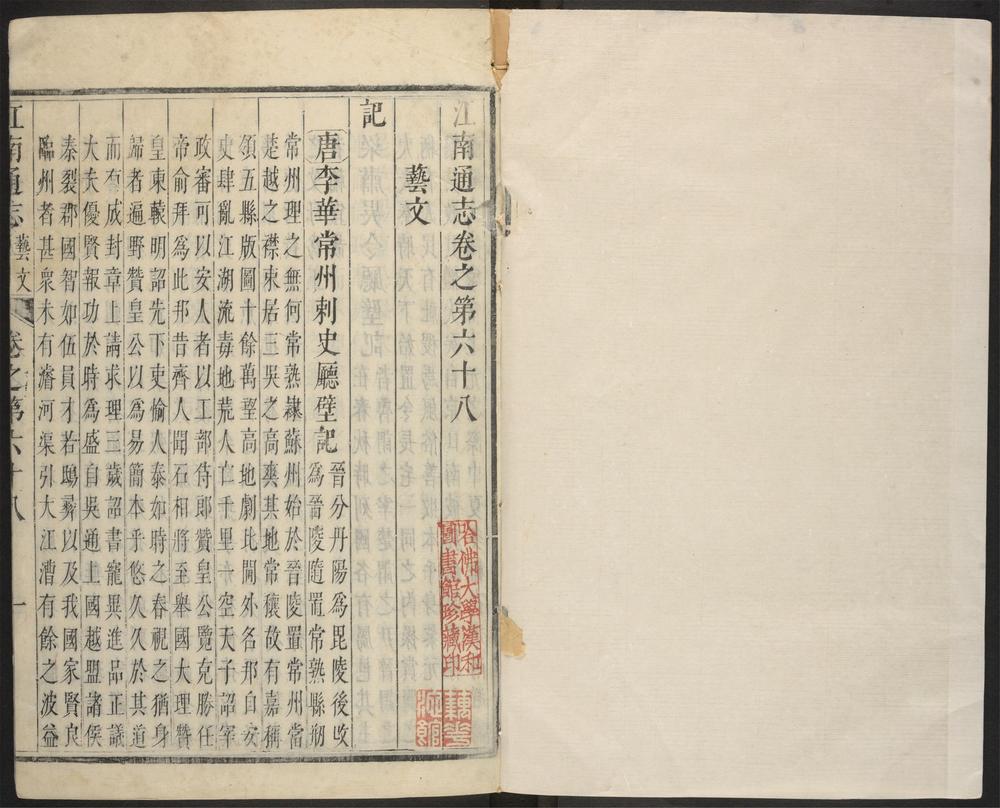 江南通志卷之第六十八
藝文
記
唐李華常州刺史廳壁記
晉分丹陽爲毘陵後改
爲晉陵隋置常熟縣剏
常州理之無何常熟隷蘇州始於晉陵置常州常
楚越之襟東居三吳之高爽其地常穰故有嘉稱
領五縣版圖十餘萬望高地劇比關外名邦自安
史肆亂江湖流毒地荒人亡千里一空天子詔宰
政審可以安人者以工部侍郎贊皇公覽克勝任
帝俞拜爲此邦昔齊人聞石相將至舉國大理贊
皇東轅明詔先下吏愉人泰如時之春視之猶身
歸者遍野贊皇公以爲易簡本乎悠久久於其道
而有成封章上請求理三歲詔書寵異進品正議
大夫優賢報功於時爲盛自吳通上國越盟諸侯
泰裂郡國智如伍員才若鴟彞以及我國家賢良
臨州者甚衆未有濬河渠引大江漕有餘之波益
江南通志
藝文
卷之第六十八
一
哈佛大學漢和
圖書館珍藏印